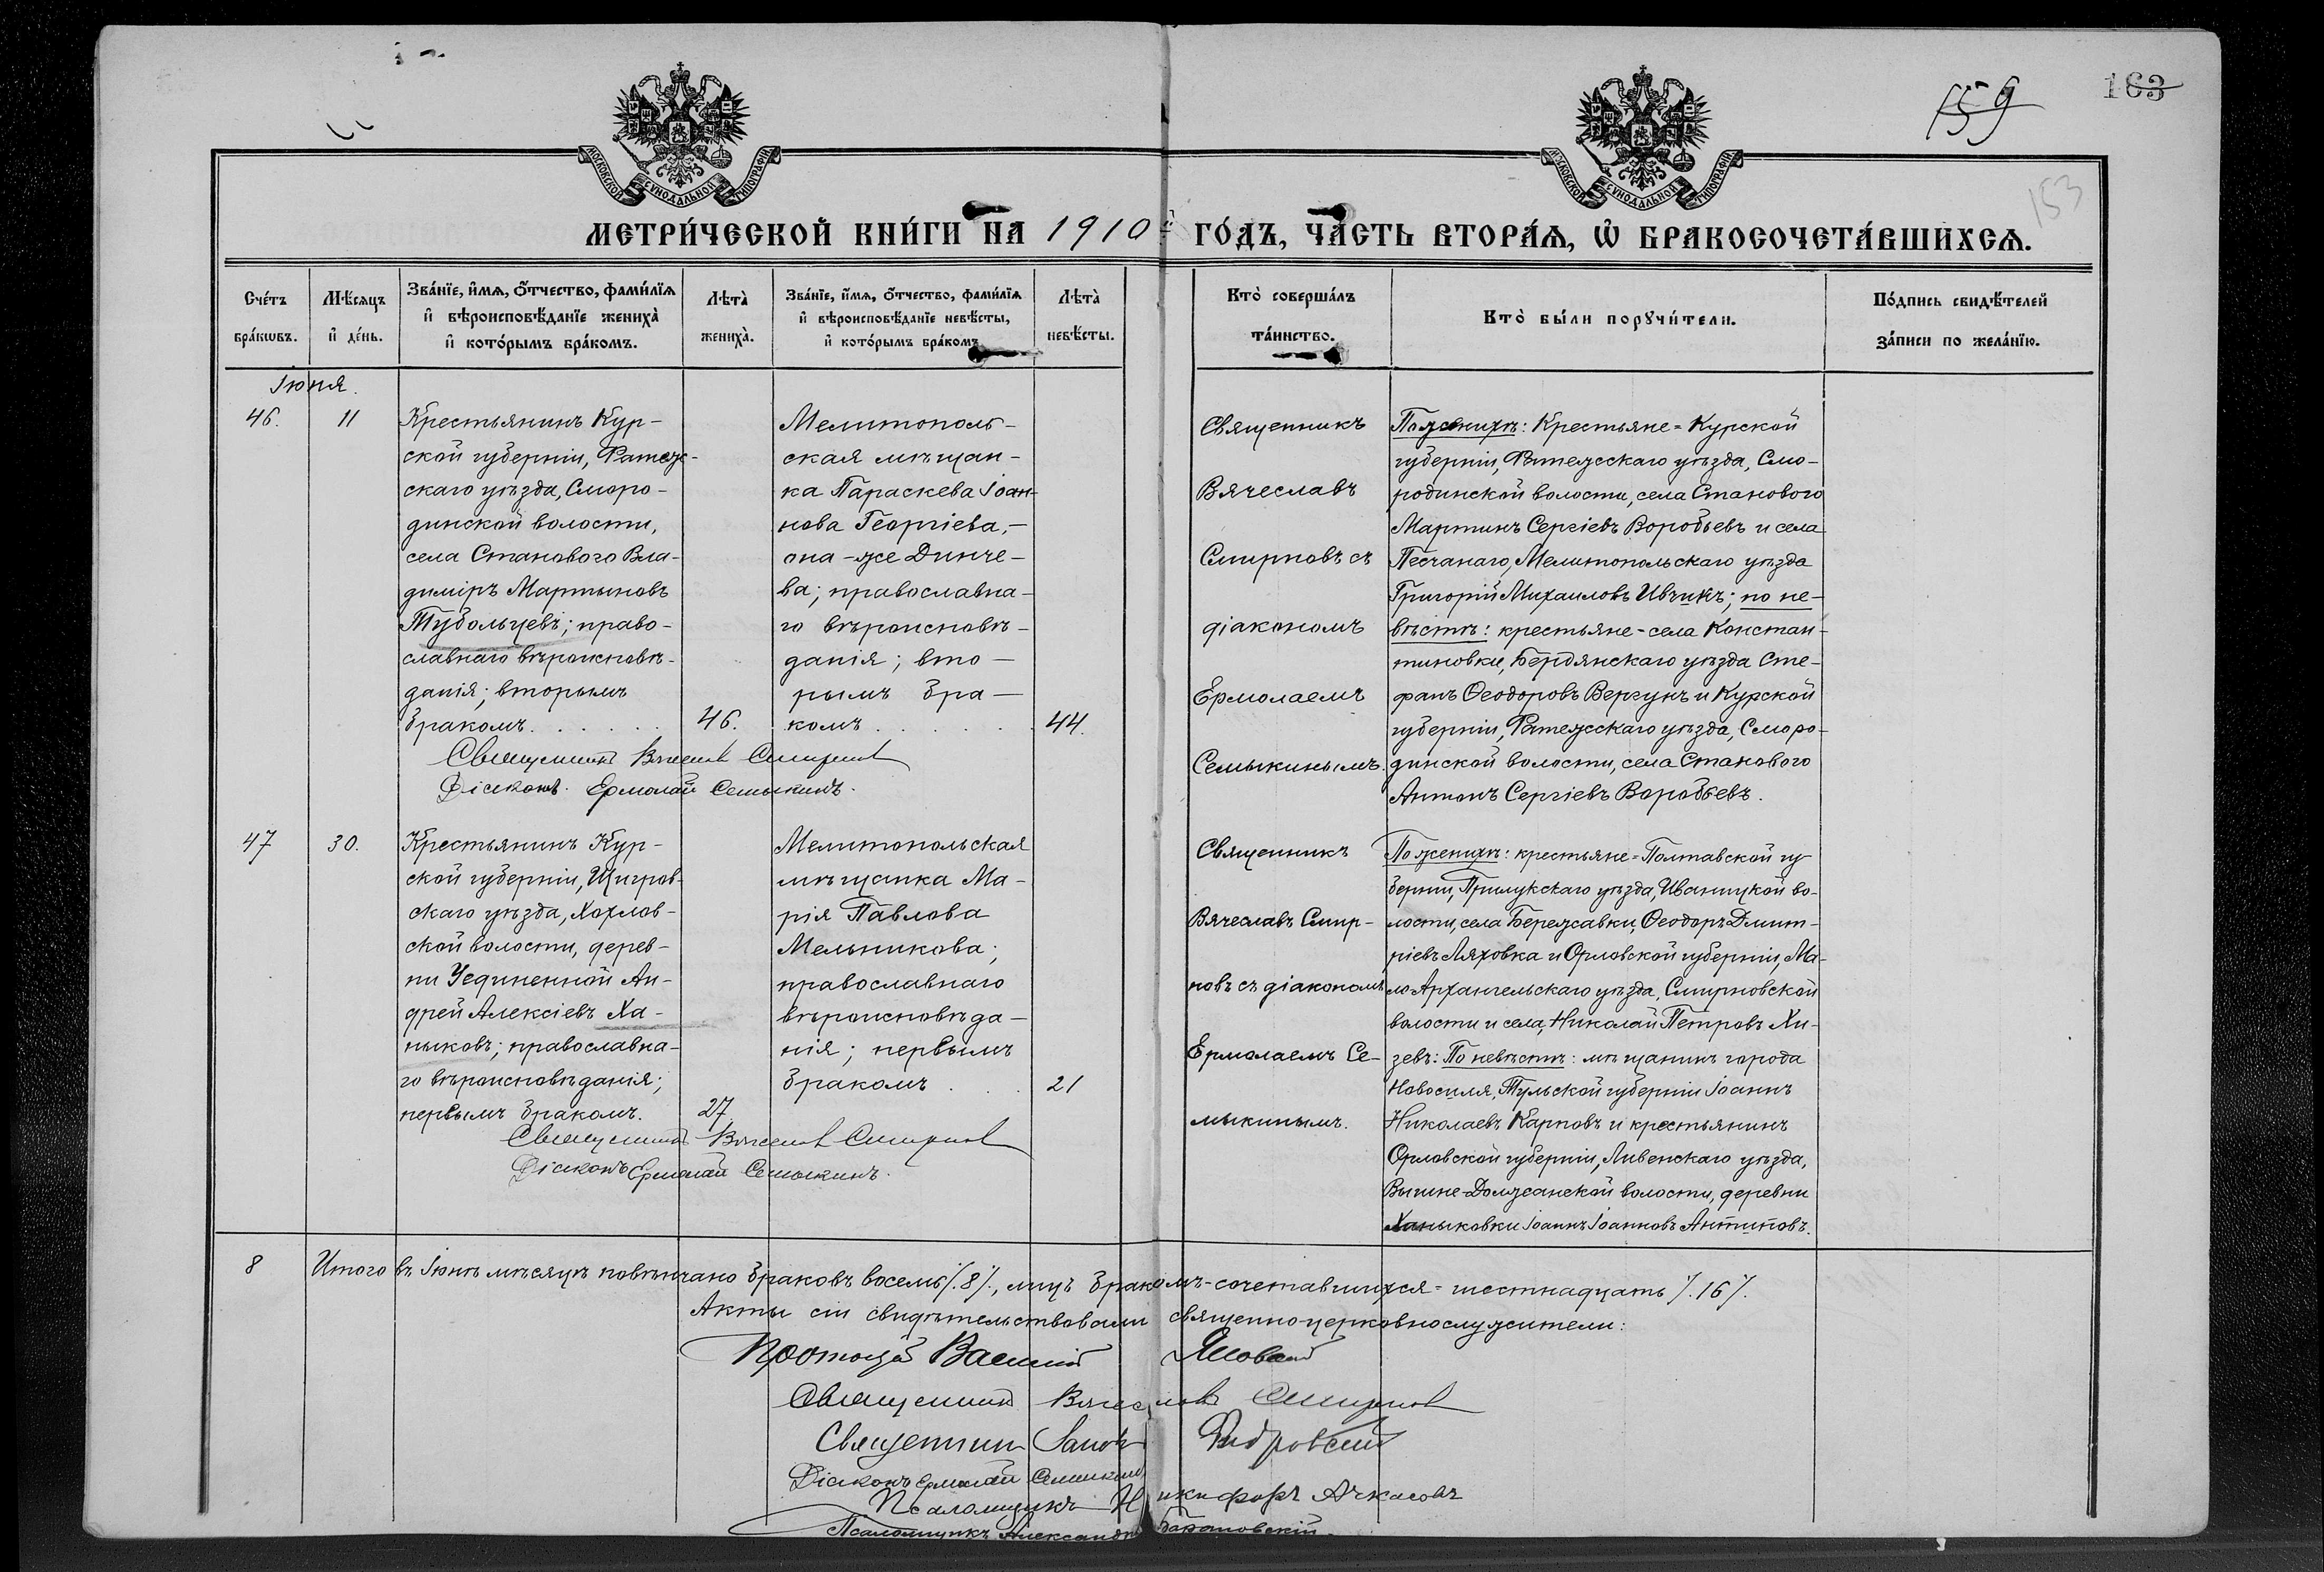 159
163
153
МОСКОВСКОЙ СУНОДАЛЬНОЙ ТИПОГРАФІИ
МОСКОВСКОЙ СУНОДАЛЬНОЙ ТИПОГРАФІИ
МЕТРИ́ЧЕСКОЙ КНИ́ГИ НА 1910й ГО́ДЪ, ЧА́СТЬ ВТОРА́Ѧ, Ѽ БРАКОСОЧЕТА́ВШИХСѦ.
Сче́тъ бра́кѡвъ.
Мѣ́сяцъ и҆ де́нь.
Зва́нїе, и҆́мѧ, о҆́тчество, фами́лїѧ и҆ вѣроисповѣ́данїе жениха̀ и҆ кото́рымъ бра́комъ.
Лѣта̀ жениха̀.
Зва́нїе, и҆́мѧ, о҆́тчество, фами́лїѧ и҆ вѣроисповѣ́данїе невѣ́сты, и҆ кото́рымъ бра́комъ
Лѣта̀ невѣ́сты.
Кто̀ соверша́лъ та́инство.
Кто̀ бы́ли порꙋчи́тели.
По́дпись свидѣ́телей за́писи по жела́нїю.
Іюня.
46.
11
Крестьянинъ Кур-
ской губерніи, Фатеж-
скаго уѣзда, Сморо-
динской волости,
села Станового Вла-
диміръ Мартыновъ
Тубольцевъ; право-
славнаго вѣроисповѣ-
данія; вторымъ
бракомъ. . . . . .
46.
Мелитополь-
ская мѣщан-
ка Параскева Іоан-
нова Георгіева,-
она-же Динче-
ва; православна-
го вѣроисповѣ-
данія; вто-
рымъ бра-
комъ . . . . .
44.
Священникъ Вячеславъ Смирновъ
Діаконъ Ермолай Семыкинъ.
Священникъ
Вячеславъ
Смирновъ съ
діакономъ
Ермолаемъ
Семыкинымъ.
По женихѣ: Крестьяне=Курской
губерніи, Фатежскаго уѣзда, Смо-
родинской волости, села Станового
Мартинъ Сергіевъ Воробьевъ и села
Песчанаго, Мелитопольскаго уѣзда
Григорій Михаиловъ Ивчикъ; по не-
вѣстѣ: крестьяне-села Констан-
тиновки, Бердянскаго уѣзда Сте-
фанъ Ѳеодоровъ Вергунъ и Курской
губерніи, Фатежскаго уѣзда, Сморо-
динской волости, села Станового
Антонъ Сергіевъ Воробьевъ.
47
30.
Крестьянинъ Кур-
ской губерніи, Щигров-
скаго уѣзда, Хохлов-
ской волости, дерев-
ни Уединенной Ан-
дрей Алексіевъ Ха-
ныковъ; православна-
го вѣроисповѣданія;
первымъ бракомъ.
27
Мелитопольская
мѣщанка Ма-
рія Павлова
Мельникова;
православнаго
вѣроисповѣда-
нія; первымъ
бракомъ . .
21
Священникъ Вячеславъ Смирновъ
Діаконъ Ермолай Семыкинъ.
Священникъ
Вячеславъ Смир-
новъ съ діакономъ
Ермолаемъ Се-
мыкинымъ.
По женихѣ: крестьяне=Полтавской гу
берніи, Прилукскаго уѣзда, Иваницкой во-
лости, села Бережавки, Ѳеодоръ Дмит-
ріевъ Ляховка и Орловской губерніи, Ма-
ло Архангельскаго уѣзда, Смирновской
волости и села, Николай Петровъ Хи-
зевъ: По невѣстѣ: мѣщанинъ города
Новосиля, Тульской губерніи Іоаннъ
Николаевъ Карповъ и крестьянинъ
Орловской губерніи, Ливенскаго уѣзда,
Вышне-Должанской волости, деревни
Ханыковки Іоаннъ Іоанновъ Антиповъ.
8
Итого въ Іюнѣ мѣсяцѣ повѣнчано браковъ восемь /.8/., лицъ бракомъ-сочетавшихся=шестнадцать /.16/.
Акты сіи свидѣтельствовали священно-церковнослужители:
Протоіерей Василій
Священникъ Вячеславъ Смирновъ
Священникъ
Діаконъ Ермолай Семыкинъ
Псаломщикъ Никифоръ Ачкасовъ
Псаломщикъ Александръ Барановскій